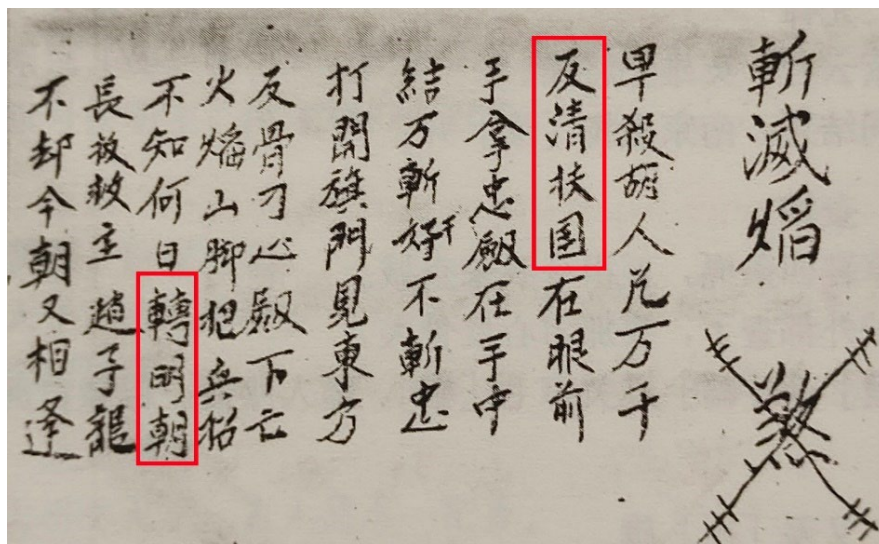 斬滅熖
煞
早殺胡人几万千
反清扶国在眼前
手拿忠劔在手中
結万斬奸不斬忠
打開旗門見東方
反骨刁心殿下亡
火熖山脚把兵招
不知何日轉明朝
長救主趙子龍
不却今朝又相逢